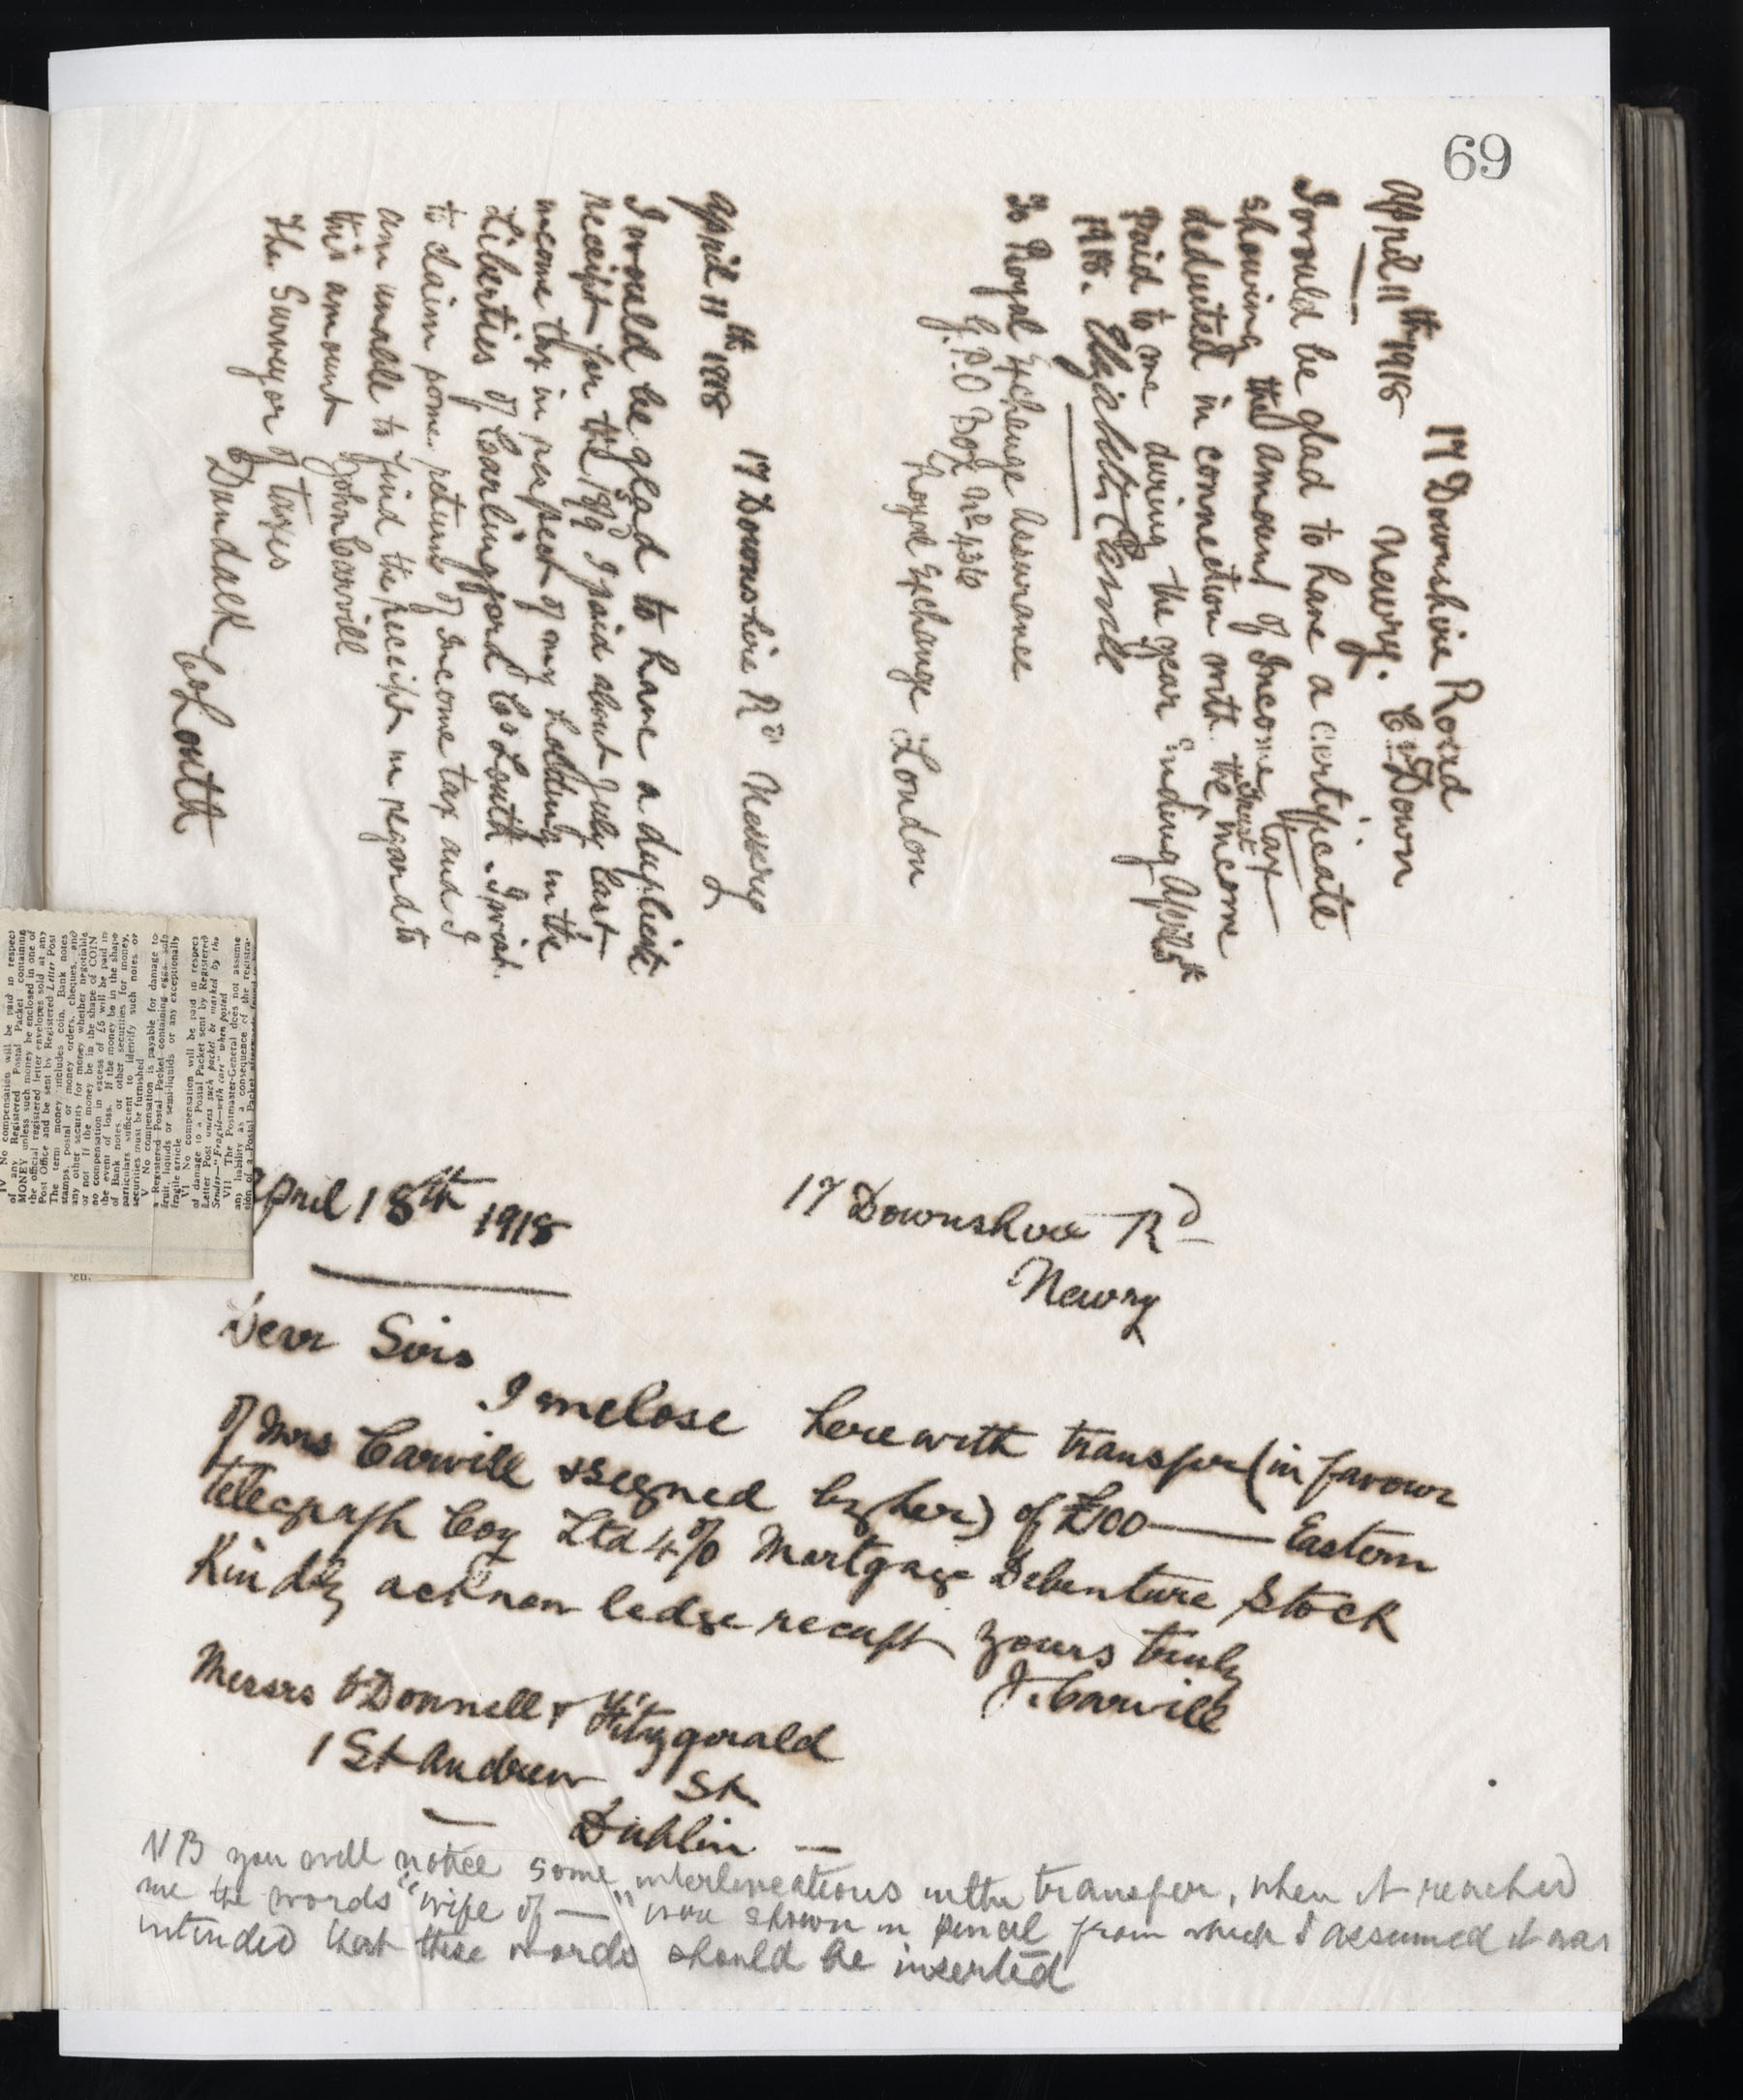 69
17 Downshire Road
Newry. Co Down
April 11th 1918
I would be glad to have a certificate
showing the amount of Income Tax
deducted in connection with the trust income
paid to me during the year ending April 5th
1918. Elizabeth
To Royal Exchange Assurance
G.P.O Box No 436
Royal Exchange London
17 Downshire Rd Newry
April 11th 1918
I would be glad to have a duplicate
receipt for the I paid about July last
income tax in respect of my holding in the
Liberties of Carlingford Co Louth. I wish
to claim some return of Income tax and I
am unable to find the receipt in regard to
this amount John Carvill
The Surveyor of taxes
Dundalk Co Louth
IV No compensation will be paid in respect
of any Registered Postal Packet containing
MONEY unless such money be enclosed in one of
the official registered letter envelopes sold at any
Post Office and be sent by Registered Letter Post
The term money includes coin, Bank notes
stamps, postal or money orders, cheques, and
any other security for money whether negotiable
or not If the money be in the shape of COIN
no compensation in excess of £5 will be paid in
the event of loss. If the money be in the shape
of Bank notes or other securities for money,
particulars sufficient to identify such notes or
securities must be furnished
V No compensation is payable for damage to
a Registered Postal Packet containing eggs, soft
fruit, liquids or semi-liquids or any exceptionally
fragile article
VI No compensation will be paid in respect
of damage to a Postal Packet sent by Registered
Letter Post unless such packet be marked by the
Sender—"Fragile—with care" when posted
VII The Postmaster-General does not assume
any liability as a consequence of the registra-
tion of a Postal Packet
April 18th 1918
17 Downshire Rd
Newry
Dear Sirs
I enclose herewith transfer (in favour
of Mrs Carvill & signed by her) of £100 — Eastern
Telegraph Coy Ltd 4% Mortgage Debenture Stock
Kindly acknowledge receipt yours truly
J. Carvill
Messrs O'Donnell & Fitzgerald
1 St Andrew St.
Dublin —
NB you will notice some interlineations in the transfer, when it reached
me the words "wife of —" was shown in pencil from which I assumed it was
intended that these words should be inserted